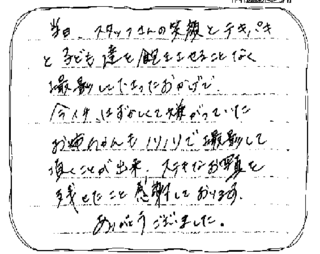 当日、スタッフさんの笑顔とテキパキ
と子ども達を飽きさせることなく
撮影して下さったおかげで、
今イチ、はずかしくて嫌がっていた
お姉ちゃんもノリノリで撮影して
頂くことが出来、ステキなお写真を
残せたこと感謝しております。
ありがとうございました。